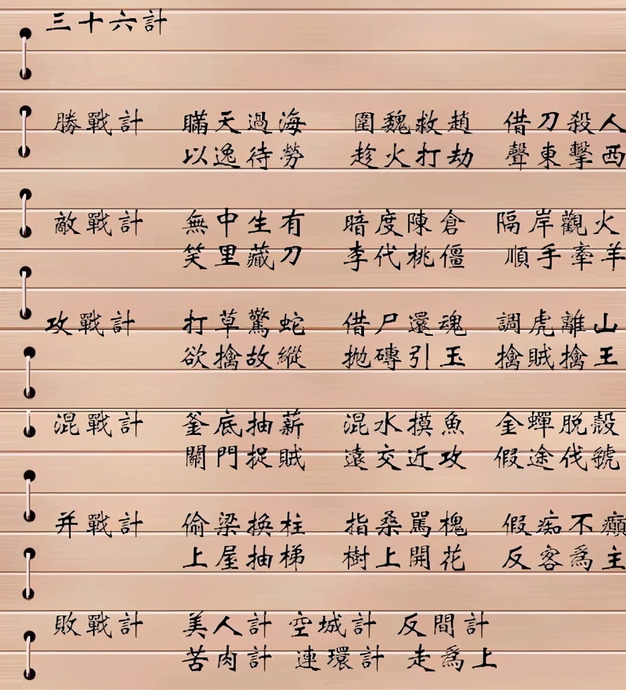 三十六計
勝戰計 瞞天過海 圍魏救趙 借刀殺人
以逸待勞 趁火打劫 聲東擊西
敵戰計 無中生有 暗度陳倉 隔岸觀火
笑里藏刀 李代桃僵 順手牽羊
攻戰計 打草驚蛇 借尸還魂 調虎離山
欲擒故縱 拋磚引玉 擒賊擒王
混戰計 釜底抽薪 混水摸魚 金蟬脫殼
關門捉賊 遠交近攻 假途伐虢
并戰計 偷梁換柱 指桑罵槐 假痴不癲
上屋抽梯 樹上開花 反客為主
敗戰計 美人計 空城計 反間計
苦肉計 連環計 走為上